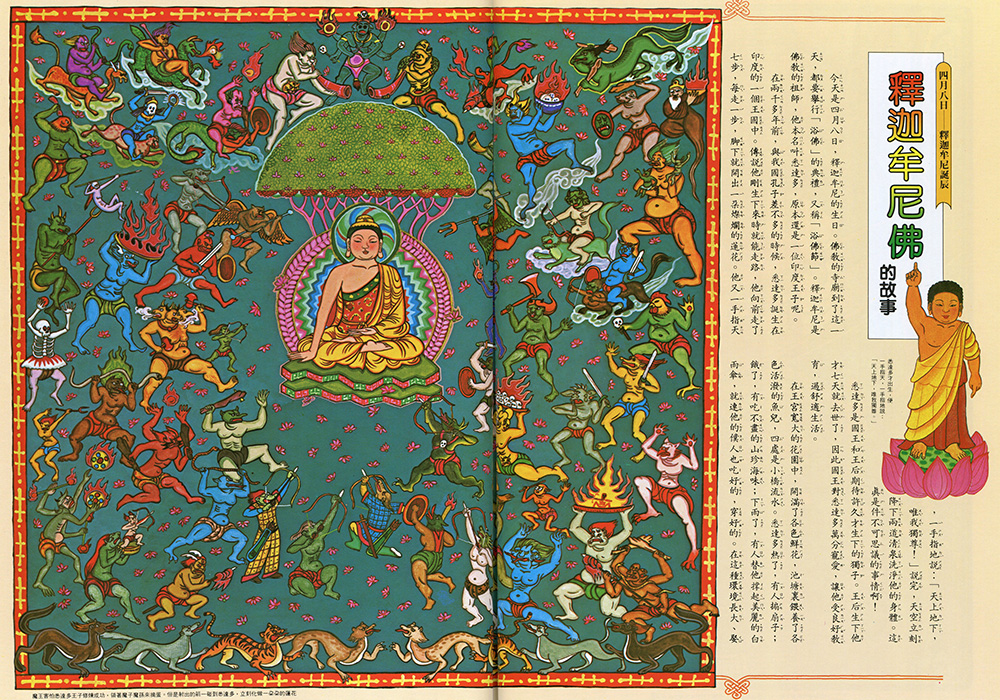 四月八日——釋迦牟尼誕辰
釋迦牟尼佛
的故事
今天是四月八日，釋迦牟尼的生日。佛教的寺廟到了這一
天，都要舉行「浴佛」的典禮，又稱「浴佛節」。釋迦牟尼是
佛教的祖師，他本名叫悉達多，原本還是一位印度王子呢。
在兩千多年前，與我國孔子差不多的時候，悉達多誕生在
印度的一個王國中。傳說他剛生下來時就能走路，他向前走了
七步，每走一步，腳下就開出一朵燦爛的蓮花。他又一手指天
，一手指地說：「天上地下，
唯我獨尊！」說完，天空立刻
降下兩道清泉洗淨他的身體。這
真是件不可思議的事情啊！
悉達多是國王和王后期待許久才生下的獨子。王后生下他
才七天就去世了，因此國王對悉達多萬分寵愛，讓他受良好教
育，過舒適生活。
在王宮寬大的花園中，開滿了各色鮮花，池塘裏餵養了各
色活潑的魚兒，四處是小橋流水。悉達多熱了，有人搧扇子；
餓了，有吃不盡的山珍海味；下雨了，有人替他撐起美麗的白
雨傘。就連他的僕人也吃好的，穿好的。在這種環境長大、娶
悉達多一出生，便
一手指天，一手指地說：
「天上地下，唯我獨尊。」
魔王害怕悉達多王子修煉成功，領著魔子魔孫來搗蛋。但是射出的箭一碰到悉達多，立刻化做一朵朵的蓮花